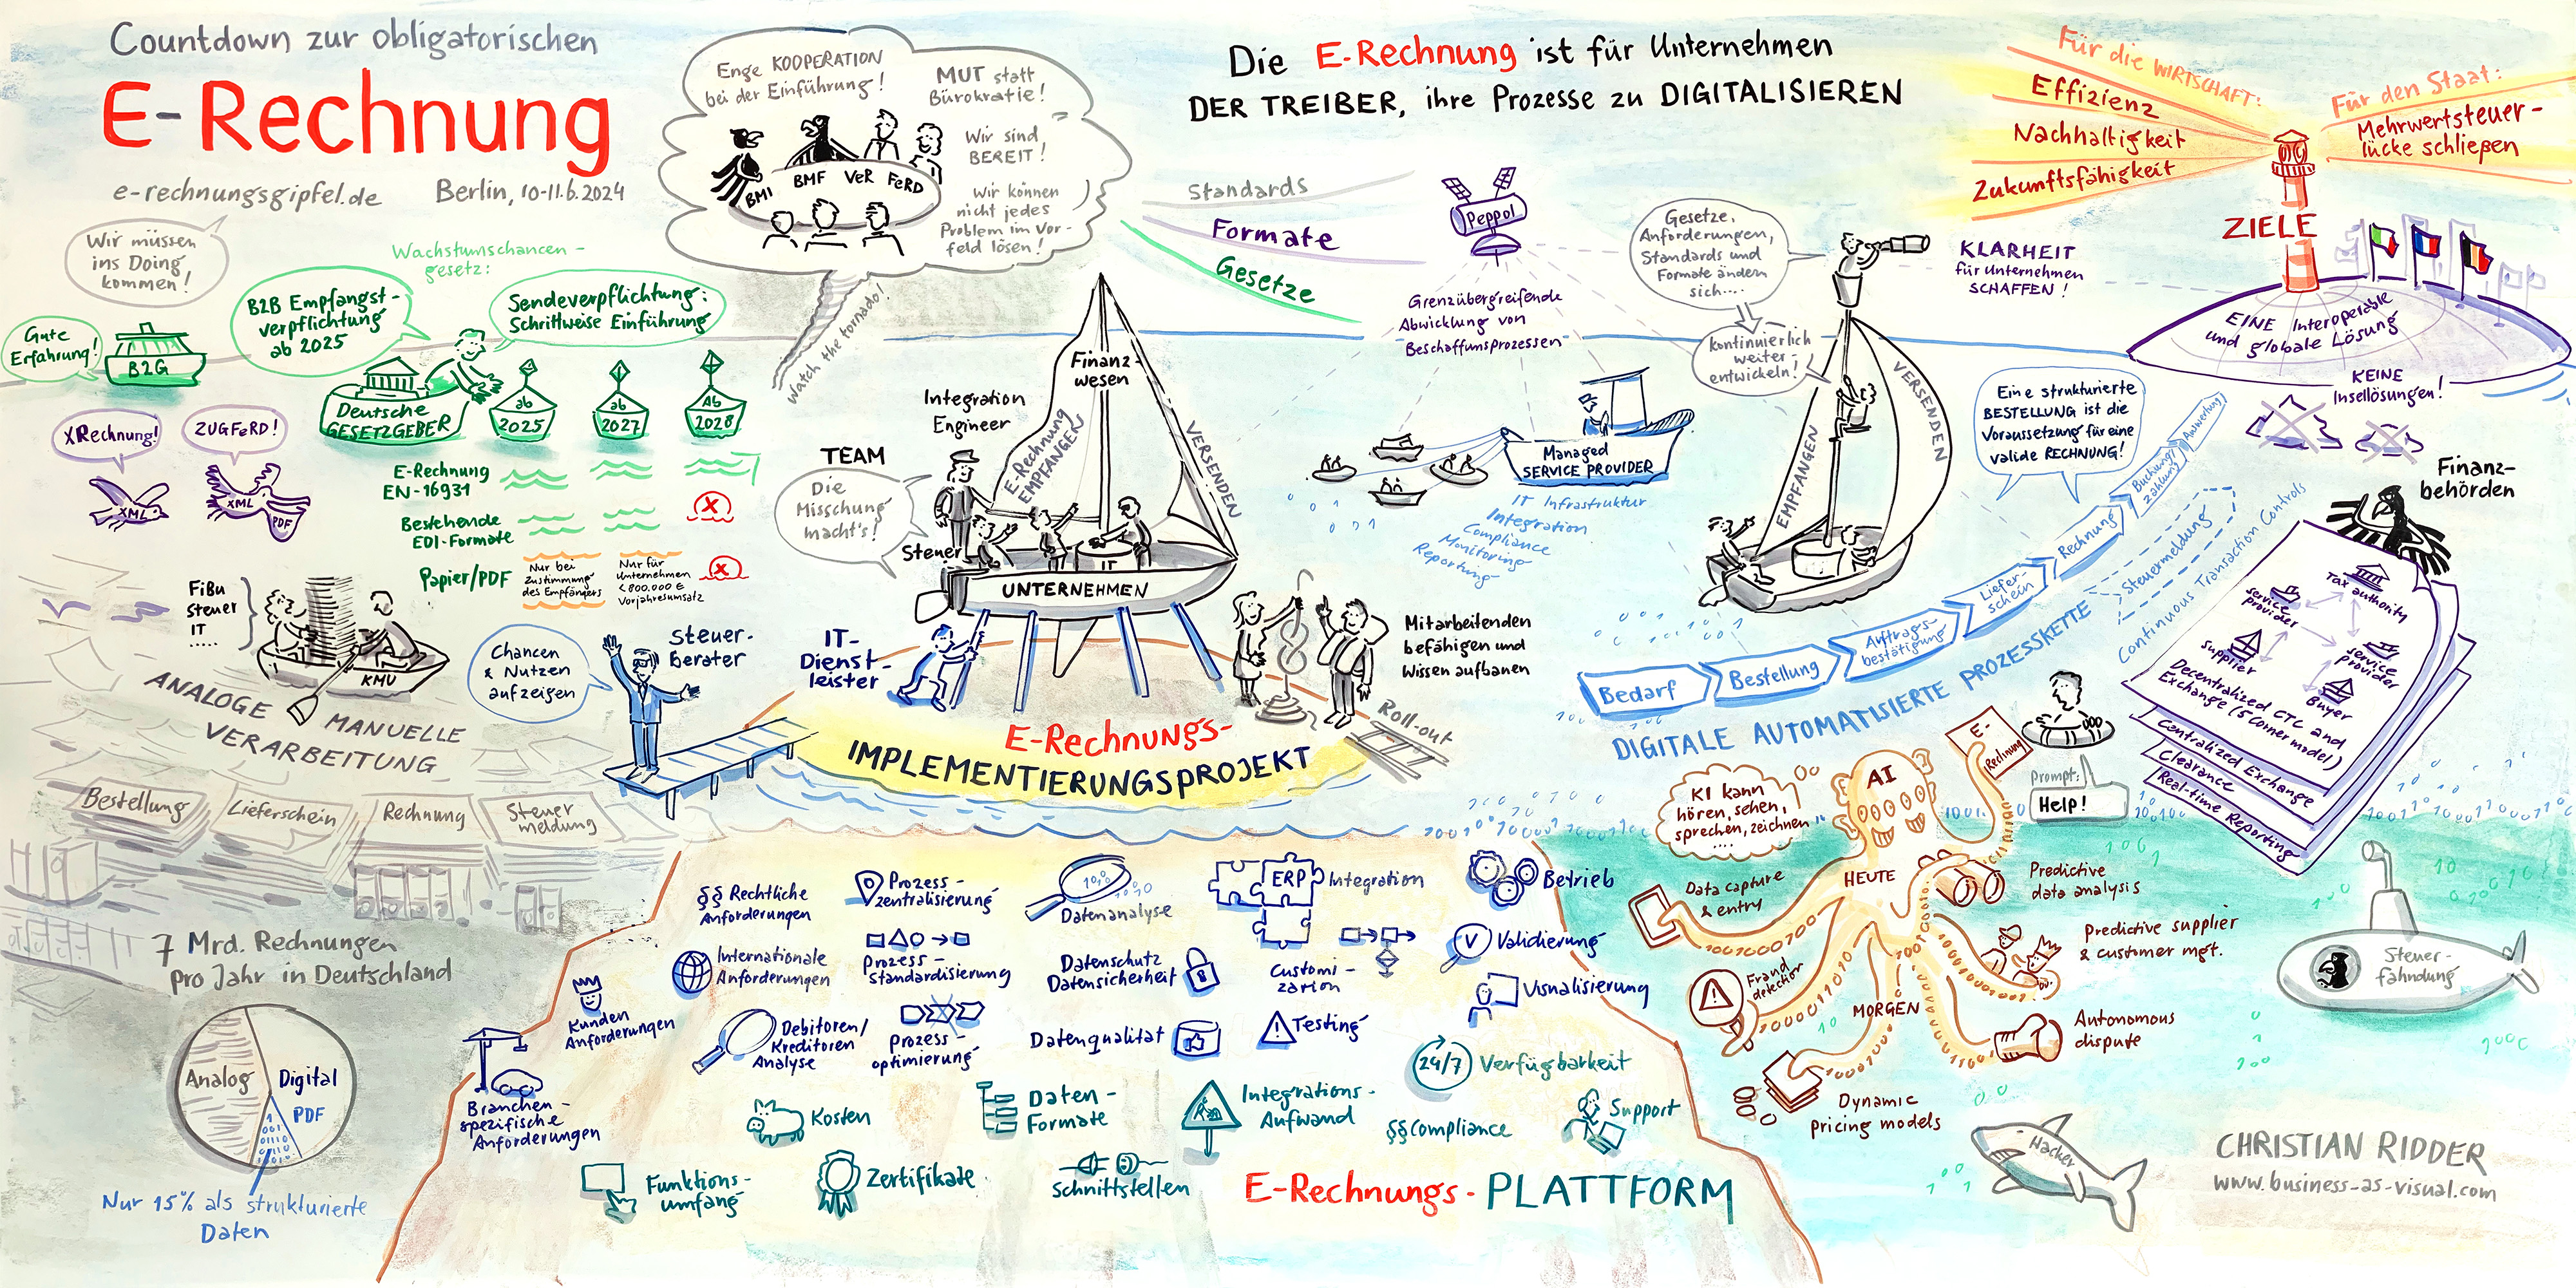 Countdown zur obligatorischen
E-Rechnung
e-rechnungsgipfel.de
Berlin, 10-11.6.2024
Wir müssen
ins Doing
kommen!
Gute
Erfahrung!
B2G
Wachstumschancen-
gesetz:
B2B Empfangst-
verpflichtung
ab 2025
Sendeverpflichtung:
Schrittweise Einführung
Deutsche
GESETZGEBER
ab
2025
ab
2027
Ab
2028
XRechnung!
ZUGFeRD!
XML
XML
PDF
E-Rechnung
EN-16931
Bestehende
EDI-Formate
Papier/PDF
Nur bei
Zustimmung
des Empfängers
Nur für
Unternehmen
<800.000 €
Vorjahresumsatz
X
X
FiBu
Steuer
IT
.....
KMU
ANALOGE MANUELLE
VERARBEITUNG
Bestellung
Lieferschein
Rechnung
Steuer
meldung
7 Mrd. Rechnungen
pro Jahr in Deutschland
Analog
Digital
PDF
Nur 15% als strukturierte
Daten
Enge KOOPERATION
bei der Einführung!
MUT statt
Bürokratie!
Wir sind
BEREIT!
Wir können
nicht jedes
Problem im Vor-
feld lösen!
BMI
BMF
VeR
FeRD
Watch the tornado!
Die E-Rechnung ist für Unternehmen
DER TREIBER, ihre Prozesse zu DIGITALISIEREN
Standards
Formate
Gesetze
Peppol
Grenzübergreifende
Abwicklung von
Beschaffunsprozessen
TEAM
Die
Misschung
macht's!
Integration
Engineer
Steuer
Finanz-
wesen
E-Rechnung
EMPFANGEN
VERSENDEN
IT
UNTERNEHMEN
Chancen
& Nutzen
aufzeigen
Steuer-
berater
IT-
Dienst-
leister
Mitarbeitenden
befähigen und
Wissen aufbauen
Roll-out
E-Rechnungs-
IMPLEMENTIERUNGSPROJEKT
Managed
SERVICE PROVIDER
IT Infrastruktur
Integration
Compliance
Monitoring
Reporting
Gesetze,
Anforderungen,
Standards und
Formate ändern
sich....
kontinuierlich
weiter-
entwickeln!
KLARHEIT
für Unternehmen
SCHAFFEN!
EMPFANGEN
VERSENDEN
Für die WIRTSCHAFT:
Effizienz
Nachhaltigkeit
Zukunftsfähigkeit
Für den Staat:
Mehrwertsteuer-
lücke schließen
ZIELE
EINE Interoperable
und globale Lösung
KEINE
Insellösungen!
Eine strukturierte
BESTELLUNG ist die
Voraussetzung für eine
valide RECHNUNG!
Bedarf
Bestellung
Auftrags-
bestätigung
Liefer-
schein
Rechnung
Buchung/
Zahlung
Auswertung
Steuermeldung
DIGITALE AUTOMATISIERTE PROZESSKETTE
Continuous Transaction Controls
Finanz-
behörden
Tax
authority
service
provider
supplier
service
provider
Buyer
Decentralized CTC and
Exchange (5 Corner model)
Centralized Exchange
Clearance
Real-time Reporting
§§ Rechtliche
Anforderungen
Internationale
Anforderungen
Kunden
Anforderungen
Branchen-
spezifische
Anforderungen
Debitoren/
Kreditoren
Analyse
Prozess-
zentralisierung
Prozess-
standardisierung
Prozess-
optimierung
Datenanalyse
Datenschutz
Datensicherheit
Datenqualität
ERP
Integration
Customi-
zation
Testing
Betrieb
Validierung
Visualisierung
24/7
Verfügbarkeit
Kosten
Daten-
Formate
Integrations-
Aufwand
§§ Compliance
Support
Funktions-
umfang
Zertifikate
Schnittstellen
E-Rechnungs-PLATTFORM
KI kann
hören, sehen,
sprechen, zeichnen
....
AI
E-
Rechnung
Prompt:
Help!
HEUTE
MORGEN
Data capture
& entry
Fraud
detection
Dynamic
pricing models
Predictive
data analysis
Predictive supplier
& customer mgt.
Autonomous
dispute
Steuer-
fahndung
Hacker
CHRISTIAN RIDDER
www.business-as-visual.com